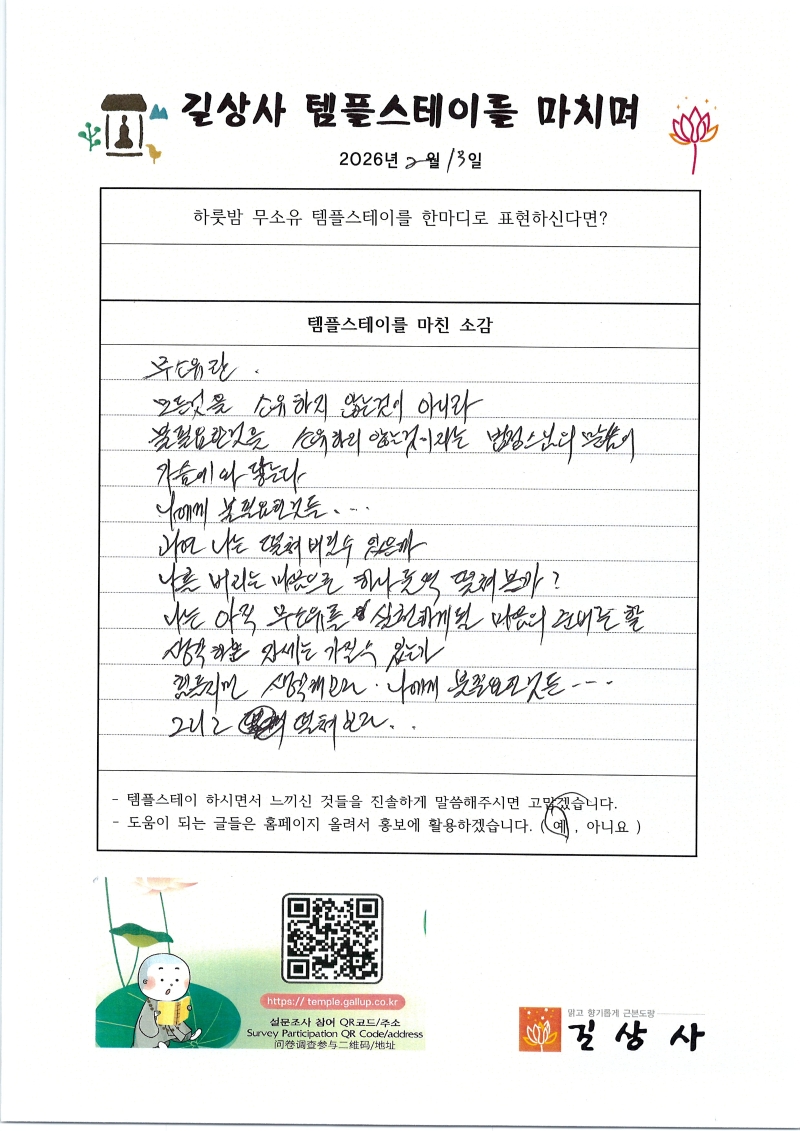 길상사 템플스테이를 마치며
2026년 2월 13일
하룻밤 무소유 템플스테이를 한마디로 표현하신다면?
템플스테이를 마친 소감
무소유란.
모든것을 소유하지 않는것이 아니라
불필요한것을 소유하지 않는것이라는 법정스님의 말씀이
가슴에 와 닿는다
나에게 불필요한것들....
과연 나는 떨쳐버릴수 있을까
나를 버리는 마음으로 하나 둘씩 떨쳐볼까?
나는 아직 무소유를 실천하게될 마음의 준비를 할
생각하는 자세는 가질수 있는가
힘들지만 생각해보다. 나에게 불필요한것들....
그리고 떨쳐보다..
- 템플스테이 하시면서 느끼신 것들을 진솔하게 말씀해주시면 고맙겠습니다.
- 도움이 되는 글들은 홈페이지 올려서 홍보에 활용하겠습니다. ( 예 , 아니요 )
https:// temple.gallup.co.kr
설문조사 참여 QR코드/주소
Survey Participation QR Code/address
问卷调查参与二维码/地址
맑고 향기롭게 근본도량
길상사